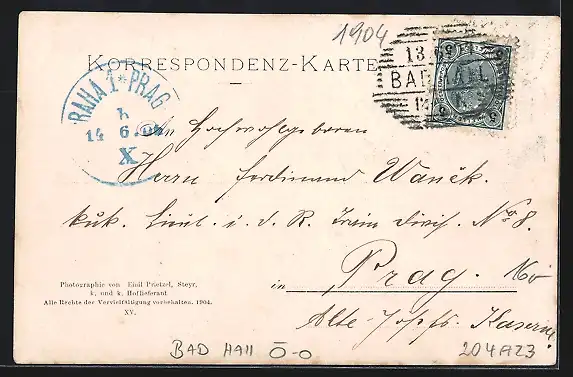 1904
KORRESPONDENZ-KARTE
13
BAD HALL
PRAHA 1*PRAG
14 6 04
X
5 5
5 5
An Hochwohlgeboren
Herrn Ferdinand Wanĕk.
kuk. Lieut. i. d. R. Train Divis. No 8.
in Prag.
Alte Josefs-Kaserne
Photographie von Emil Prietzel, Steyr,
k. und k. Hoflieferant
Alte Rechte der Vervielfältigung vorbehalten. 1904.
XV.
BAD HAll O-O
204AZ3